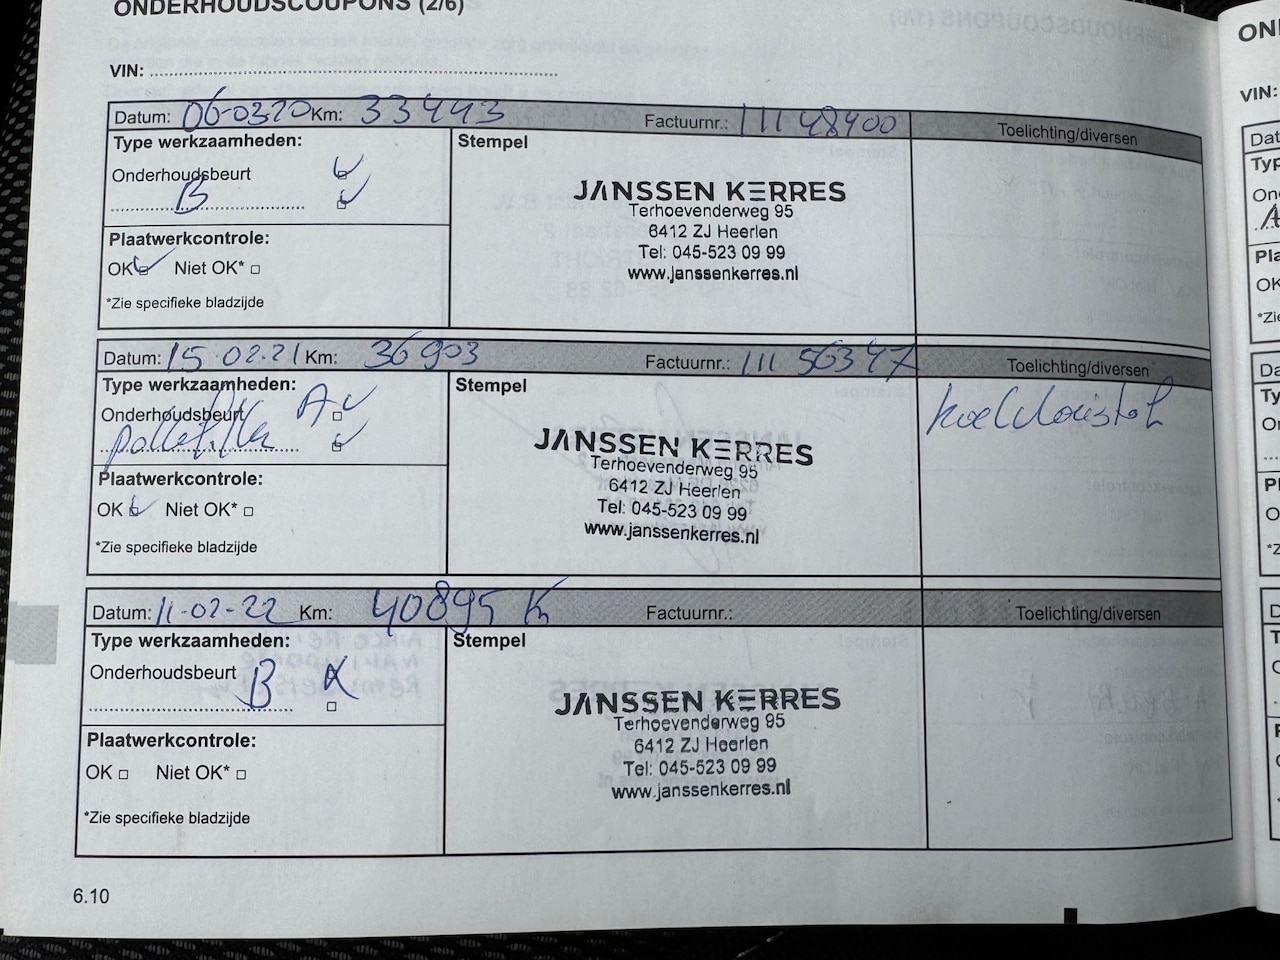 ONDERHOUDSCOUPONS (2/6)
VIN:
Datum: 06-0320 Km: 33443 Factuurnr.: 11148400 Toelichting/diversen
Type werkzaamheden:
Stempel
Onderhoudsbeurt
B
Plaatwerkcontrole:
OK Niet OK*
*Zie specifieke bladzijde
JANSSEN KERRES
Terhoevenderweg 95
6412 ZJ Heerlen
Tel: 045-523 09 99
www.janssenkerres.nl
Datum: 15-02-21 Km: 36903 Factuurnr.: 11156347 Toelichting/diversen
Type werkzaamheden:
Stempel
Onderhoudsbeurt A
Plaatwerkcontrole:
OK Niet OK*
*Zie specifieke bladzijde
JANSSEN KERRES
Terhoevenderweg 95
6412 ZJ Heerlen
Tel: 045-523 09 99
www.janssenkerres.nl
Datum: 11-02-22 Km: 40895 Factuurnr.: Toelichting/diversen
Type werkzaamheden:
Stempel
Onderhoudsbeurt B
Plaatwerkcontrole:
OK Niet OK*
*Zie specifieke bladzijde
JANSSEN KERRES
Terhoevenderweg 95
6412 ZJ Heerlen
Tel: 045-523 09 99
www.janssenkerres.nl
6.10
VIN: